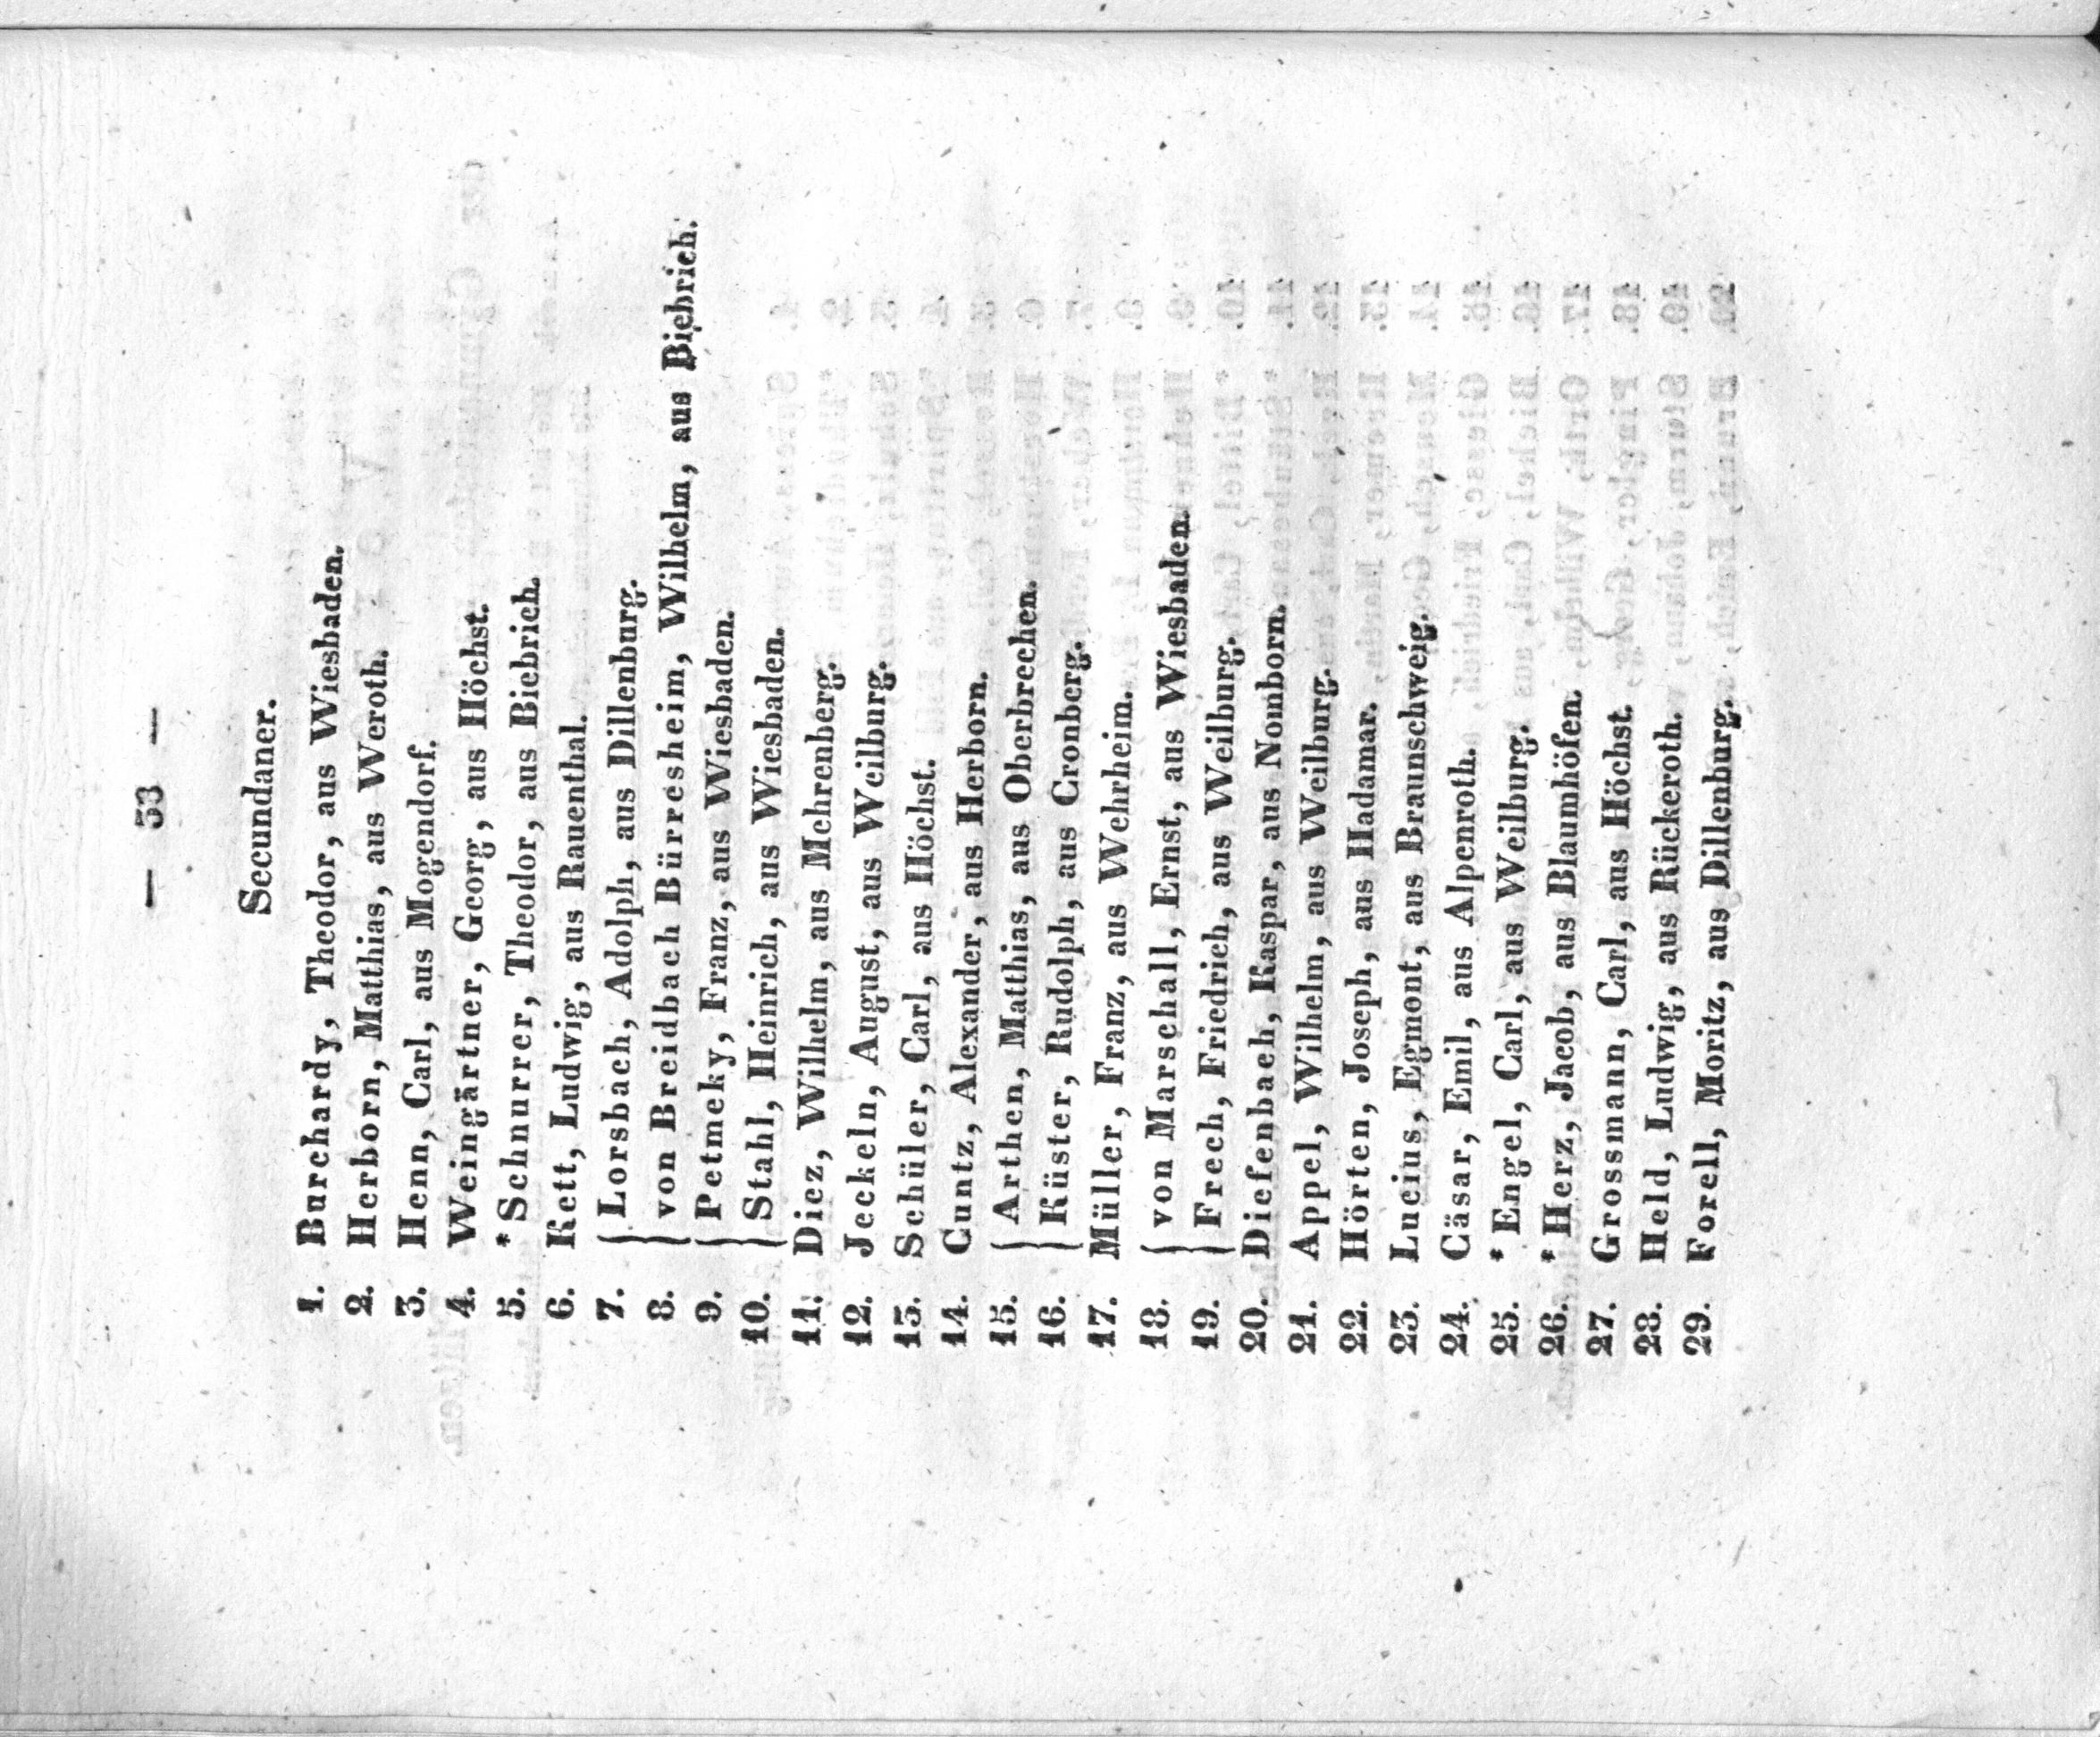 — 53 —
Secundaner.
1. Burchardy, Theodor, aus Wiesbaden.
2. Herborn, Matthias, aus Weroth.
3. Henn, Carl, aus Mogendorf.
4. Weingärtner, Georg, aus Höchst.
5. *Schnurrer, Theodor, aus Biebrich.
6. Kett, Ludwig, aus Rauenthal.
7. { Lorsbach, Adolph, aus Dillenburg.
8. { von Breidbach Bürresheim, Wilhelm, aus Biebrich.
9. { Petmeky, Franz, aus Wiesbaden.
10. { Stahl, Heinrich, aus Wiesbaden.
11. Diez, Wilhelm, aus Mehrenberg.
12. Jeckeln, August, aus Weilburg.
13. Schüler, Carl, aus Höchst.
14. Cuntz, Alexander, aus Herborn.
15. { Arthen, Matthias, aus Oberbrechen.
16. { Küster, Rudolph, aus Cronberg.
17. Müller, Franz, aus Wehrheim.
18. { von Marschall, Ernst, aus Wiesbaden.
19. { Frech, Friedrich, aus Weilburg.
20. Diefenbach, Kaspar, aus Nomborn.
21. Appel, Wilhelm, aus Weilburg.
22. Hörten, Joseph, aus Hadamar.
23. Lucius, Egmont, aus Braunschweig.
24. Cäsar, Emil, aus Alpenroth.
25. *Engel, Carl, aus Weilburg.
26. *Herz, Jacob, aus Blaumhöfen.
27. Grossmann, Carl, aus Höchst.
28. Held, Ludwig, aus Rückeroth.
29. Forell, Moritz, aus Dillenburg.